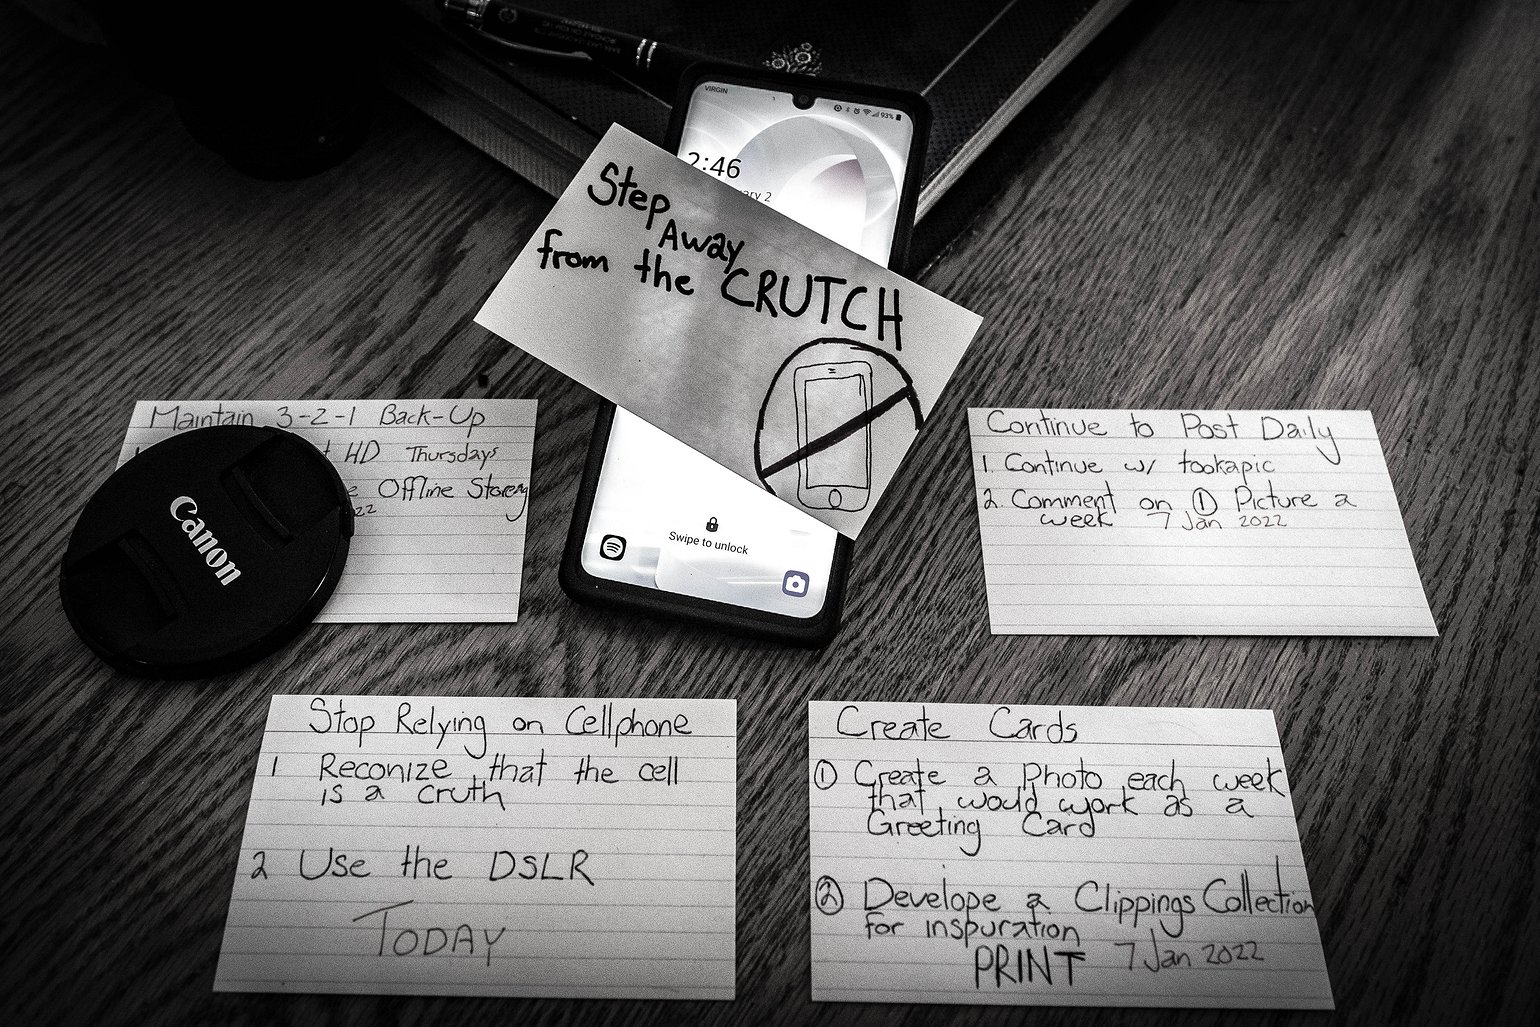 VIRGIN
93%
2:46
ary 2
Step Away
from the CRUTCH
Swipe to unlock
Maintain 3-2-1 Back-Up
t HD Thursdays
e Offline Storeg
22
Canon
Continue to Post Daily
1. Continue w/ tookapic
2. Comment on ① Picture a
week 7 Jan 2022
Stop Relying on Cellphone
1 Reconize that the cell
is a cruth
2 Use the DSLR
TODAY
Create Cards
① Create a Photo each week
that would work as a
Greeting Card
② Develope a Clippings Collection
for inspuration
PRINT 7 Jan 2022